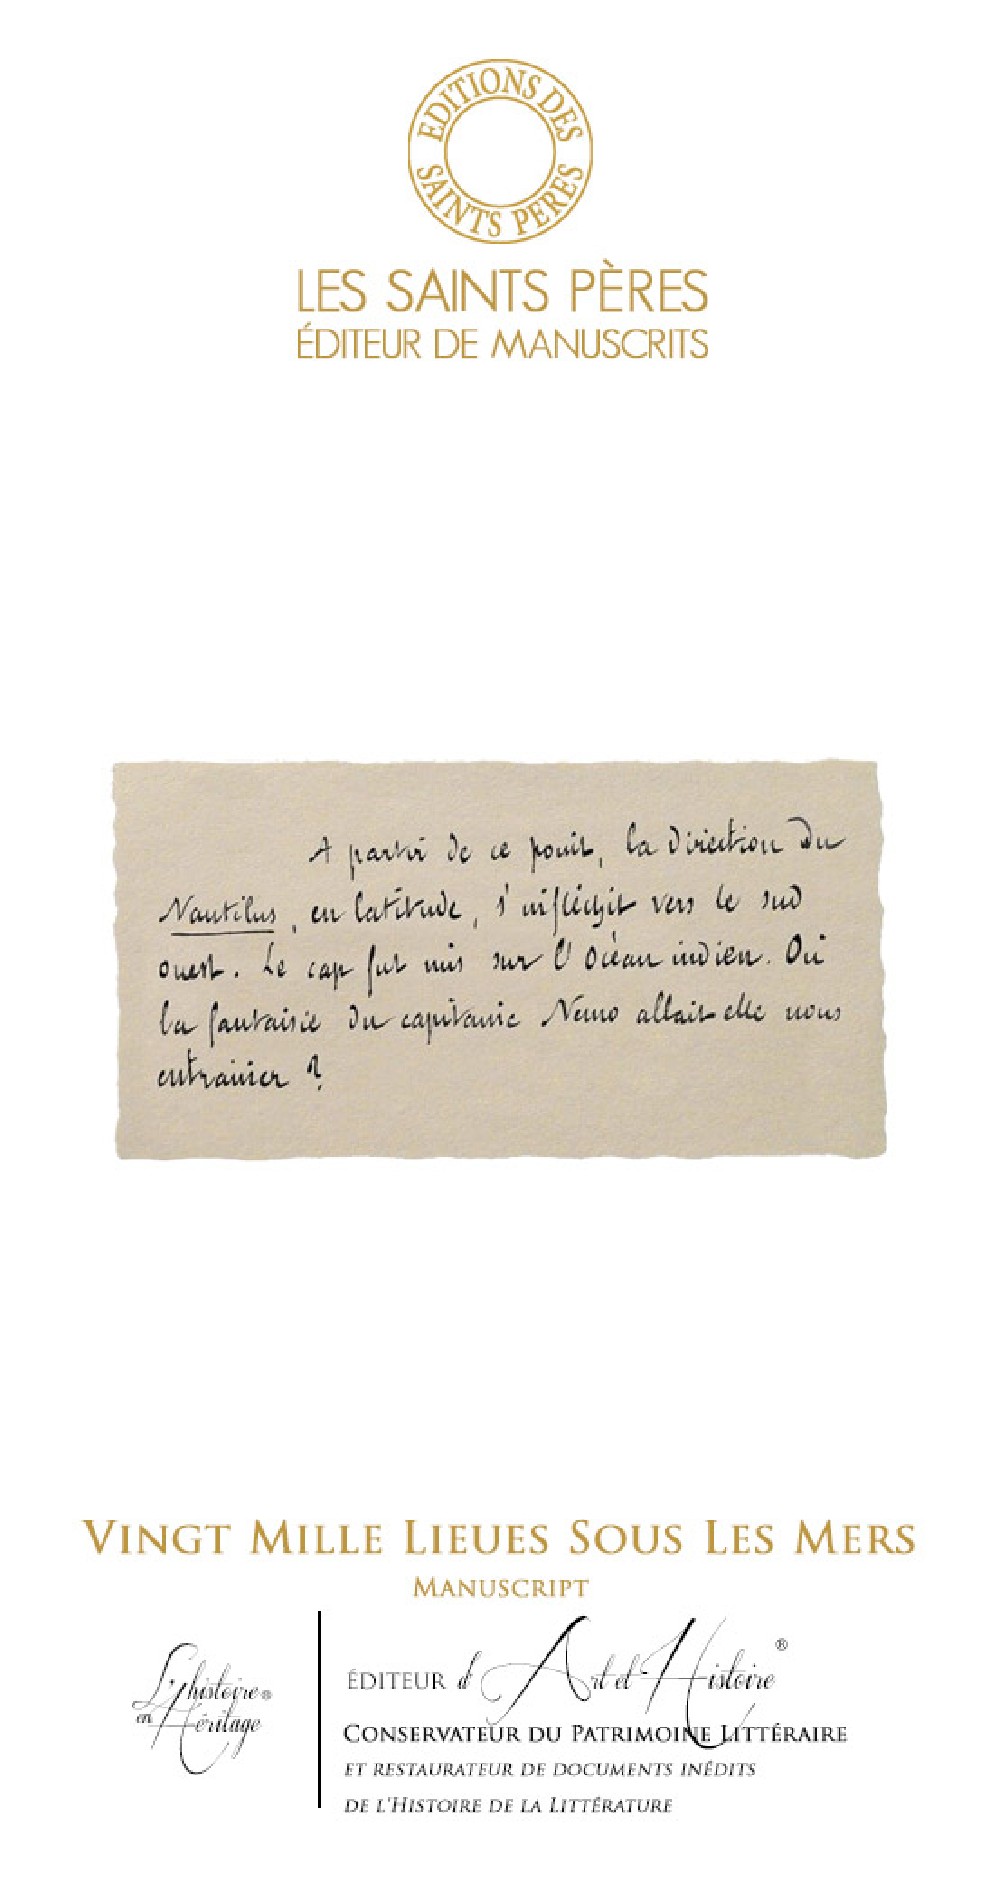 EDITIONS DES
SAINTS PERES
LES SAINTS PÈRES
ÉDITEUR DE MANUSCRITS
A partir de ce point, la direction du
Nautilus, en latitude, s'infléchit vers le sud
ouest. Le cap fut mis sur l'Océan indien. Où
la fantaisie du capitaine Nemo allait-elle nous
entrainer ?
VINGT MILLE LIEUES SOUS LES MERS
MANUSCRIPT
L'histoire®
en Héritage
ÉDITEUR d'Art et Histoire®
CONSERVATEUR DU PATRIMOINE LITTÉRAIRE
ET RESTAURATEUR DE DOCUMENTS INÉDITS
DE L'HISTOIRE DE LA LITTÉRATURE